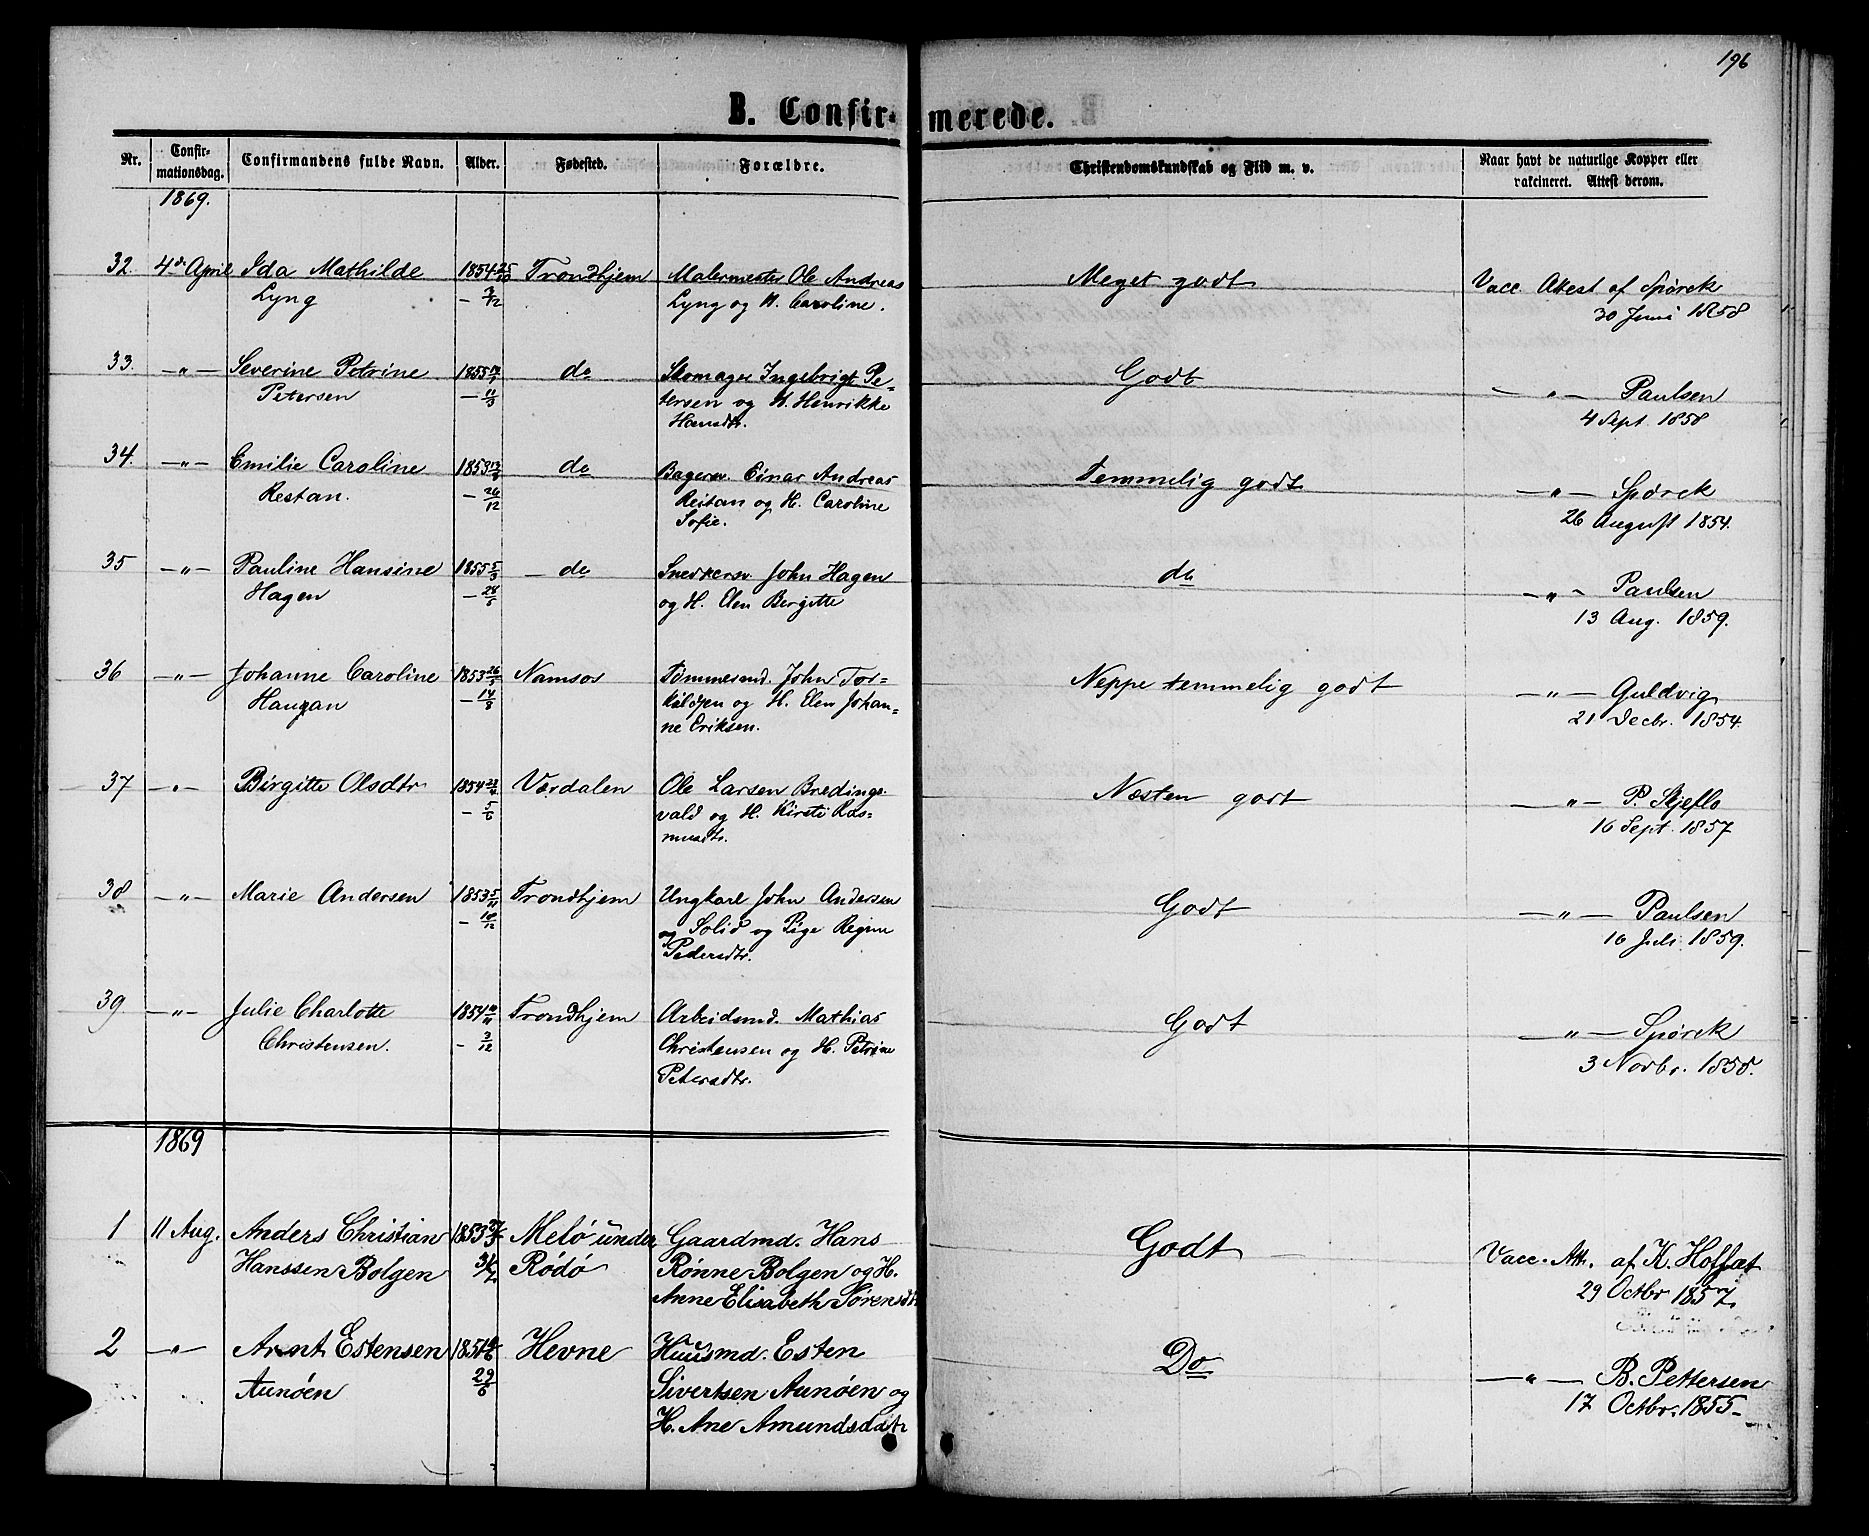 196
B. Confirmerede.
Nr. Confirmationsdag. Confirmandens fulde Navn. Alder. Fødested. Forældre. Christendomskundskab og Flid m. v. Naar havt de naturlige Kopper eller vakcineret. Attest derom.
1869.
32. 4de April Ida Mathilde 1854 25/10 Trondhjem Malermester Ole Andreas Meget godt Vacc. Attest af Spørck
Lyng - /12 Lyng og H. Caroline. 30 Juni 1858
33. -"- Severine Petrine 1855 do Skomager Ingebrigt Pe= Godt -"- Paulsen
Petersen - 11/3 tersen og H. Henrikke 4 Sept. 1858
Hansdtr.
34. -"- Emilie Caroline 1853 do Bagersv. Einar Andreas Temmelig godt -"- Spørck
Restan. - 26/12 Reitan og H. Caroline 26 August 1854.
Sofie.
35 -"- Pauline Hansine 1855 5/3 do Snedkersv John Hagen do -"- Paulsen
Hagen - 28/5 og H. Elen Bergitte 13 Aug. 1859.
36 -"- Johanne Caroline 1853 26/5 Namsos Tømmermd. John Tor= Neppe temmelig godt -"- Guldvig
Haugan - 14/8 kildsen og H. Elen Johan= 21 Decbr. 1854.
ne Eriksen.
37 -"- Birgitte Olsdtr 1854 Værdalen Ole Larsen Bredings= Næsten godt -"- P. Skjeflo
- 5/6 vald og H. Kirsti Ras= 16 Sept. 1857
musdtr.
38 -"- Marie Andersen 1853 5/11 Trondhjem Ungkarl John Andersen Godt -"- Paulsen
- 18/12 og Solid og Pige Regine 16 Juli 1859.
Pedersdtr.
39. -"- Julie Charlotte 1854 Trondhjem Arbeidsmd. Mathias Godt -"- Spørck
Christensen. - 3/12 Christensen og H. Petrine 3 Novbr. 1858.
Petersdtr.
1869
1 11 Aug. Anders Christian 1853 Melø under Gaardmd. Hans Godt Vacc. Att. af K. Hoffæt
Hanssen Bolgen 31/7 Rødø Rønne Bolgen og H. 29 Octbr 1857
Anne Elisabeth Sørensdt
2 -"- Arnt Estensen 1851 Hevne Huusmd. Esten Do -"- B. Pettersen
Aunøen 29/6 Sivertsen Aunøen og 17 Octbr. 1855-
H. Ane Amundsdatr